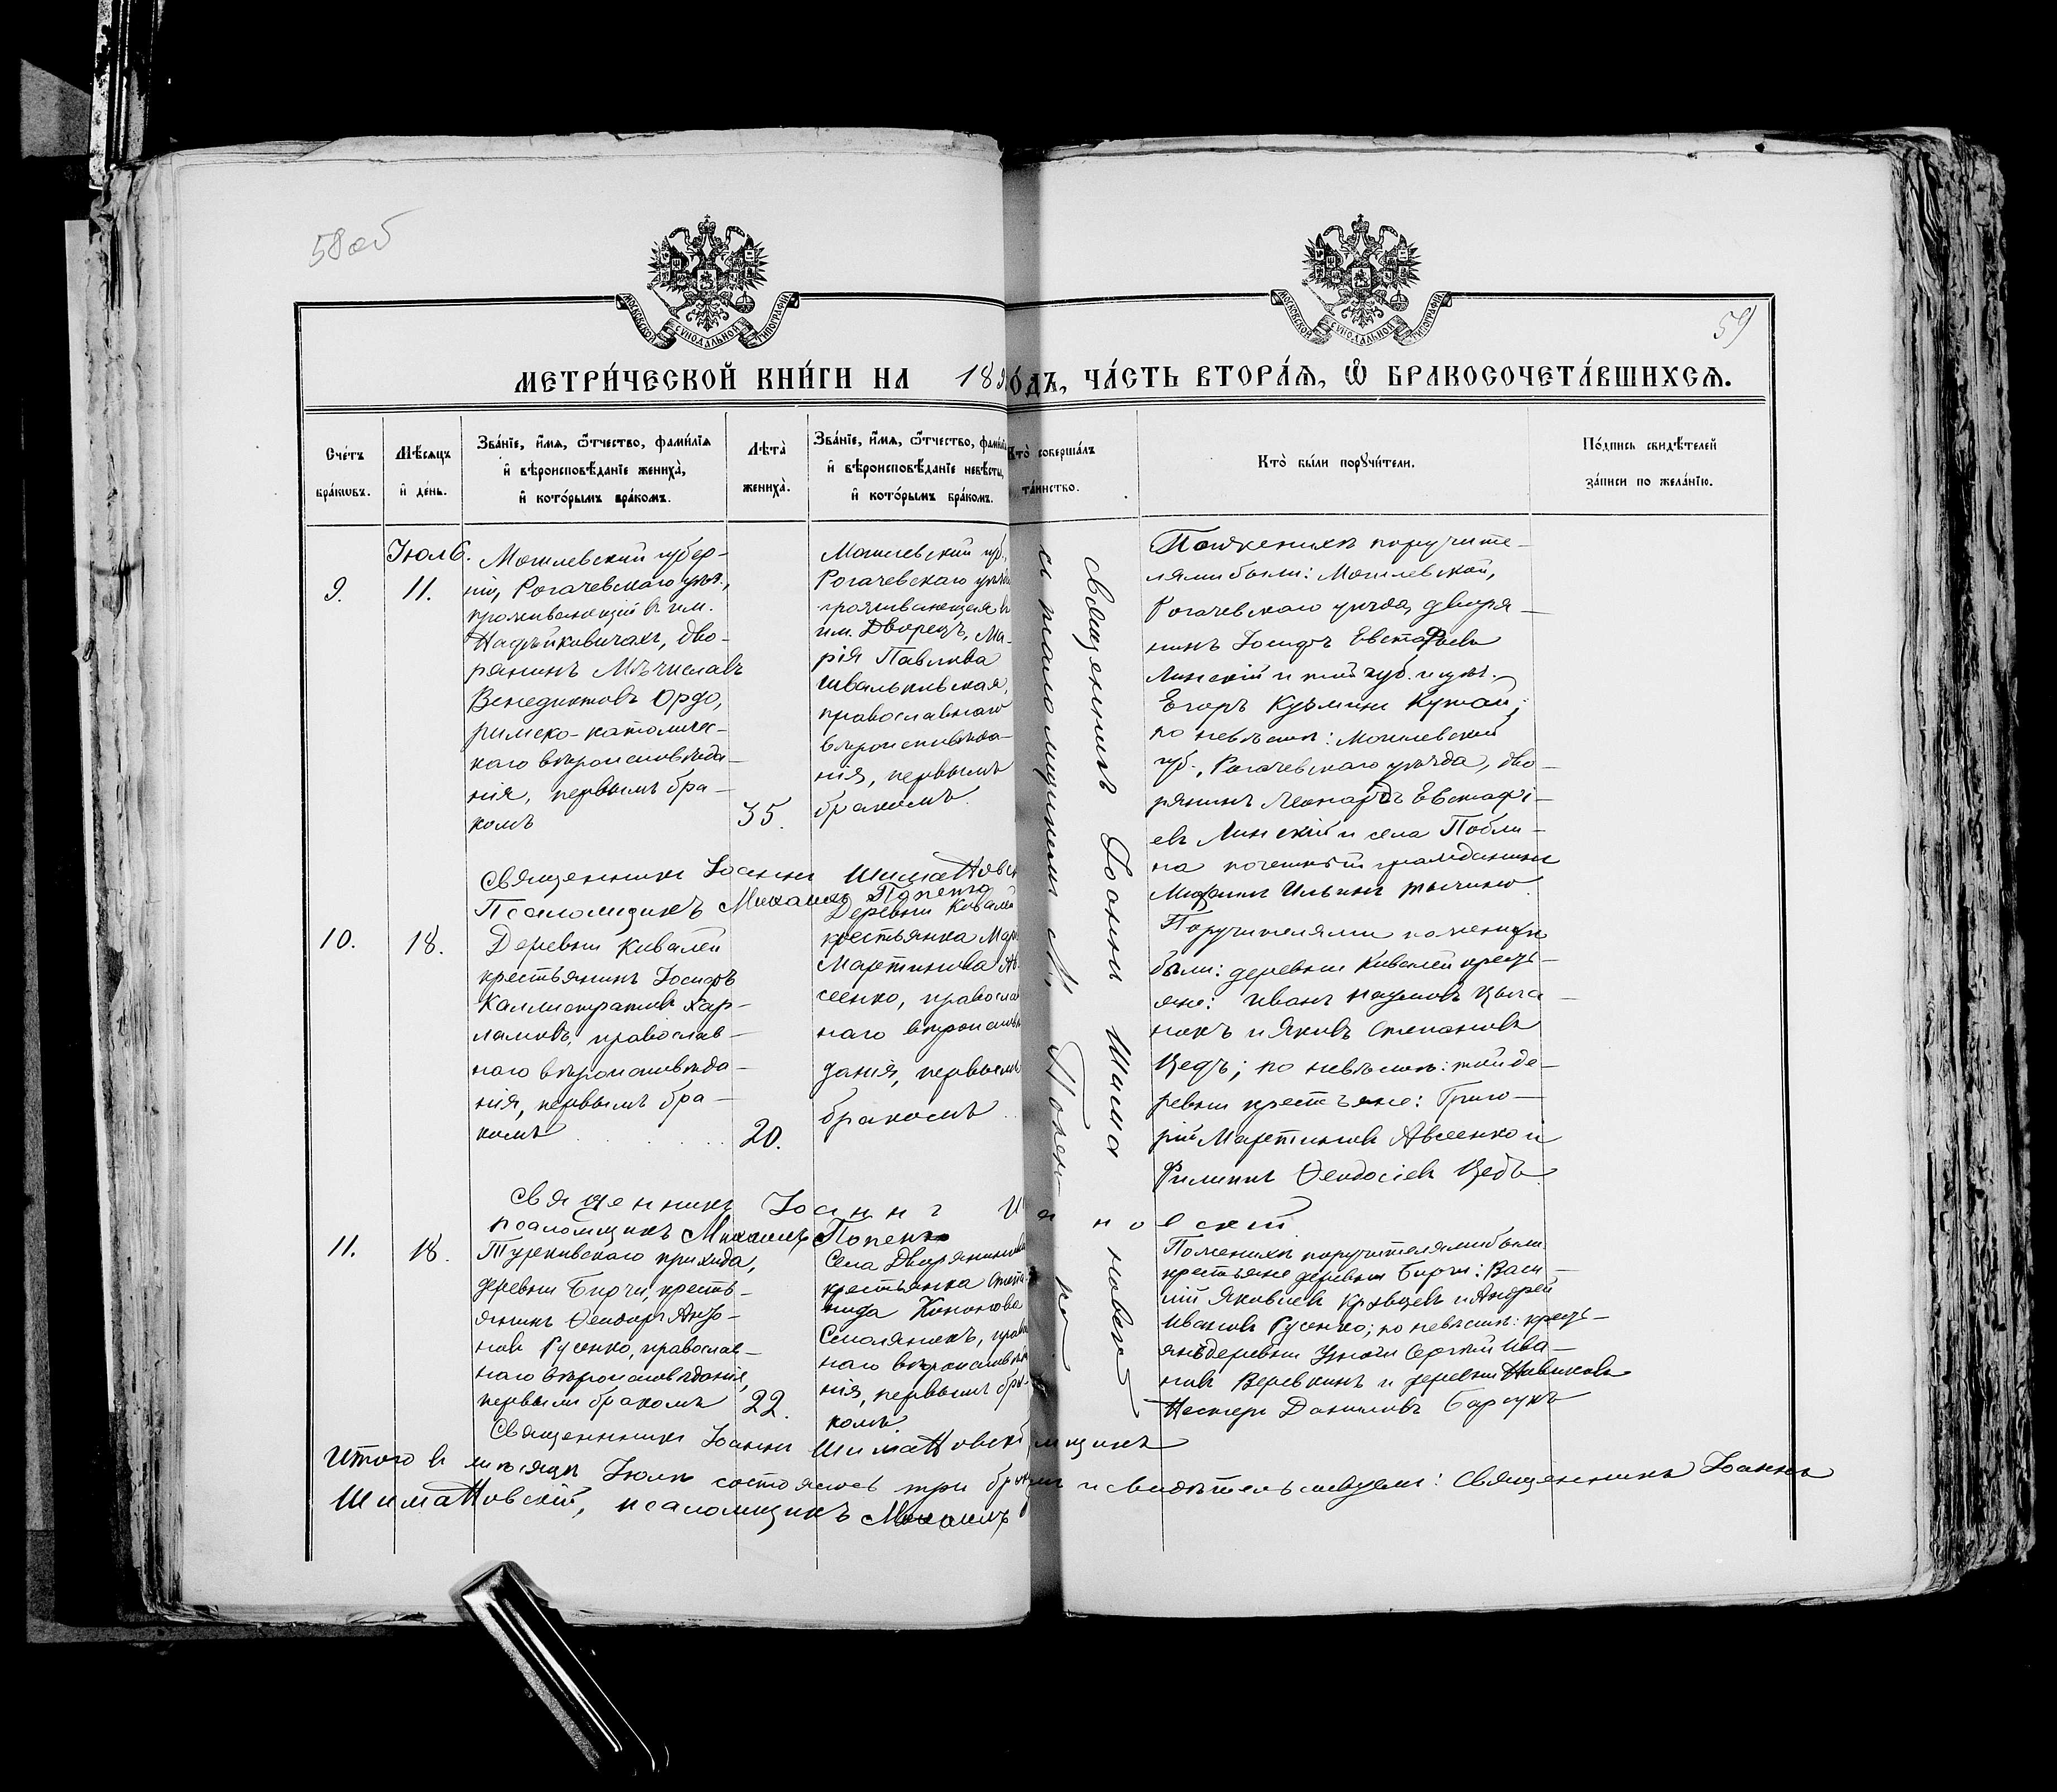 58об
59
МОСКОВСКОЙ СѴНОДАЛЬНОЙ ТИПОГРАФІИ
МОСКОВСКОЙ СѴНОДАЛЬНОЙ ТИПОГРАФІИ
МЕТРИ́ЧЕСКОЙ КНИ́ГИ НА 189
О́ДЪ, ЧА́СТЬ ВТОРА́Ѧ, Ѡ҆ БРАКОСОЧЕТА́ВШИХСѦ.
Сче́тъ
бра́кѡвъ.
Мѣ́сѧцъ
и҆ де́нь.
Зва́нїе, и҆́мѧ, ѻ҆́тчество, фами́лїѧ
и҆ вѣроисповѣ́данїе жениха̀,
и҆ кото́рымъ бра́комъ.
Лѣ́та
жениха̀.
Зва́нїе, и҆́мѧ, ѻ҆́тчество, фами́лїѧ
и҆ вѣроисповѣ́данїе невѣ́сты,
и҆ кото́рымъ бра́комъ.
Кто̀ соверша́лъ
та́инство.
Кто̀ бы́ли порꙋчи́тели.
По́дпись свидѣ́телей
за́писи по жела́нїю.
9.
Іюль.
11.
Могилевской губер-
ніи, Рогачевскаго уѣз.,
проживающій въ им.
Надѣйковичахъ, дво-
рянинъ Мѣчиславъ
Венедиктовъ Ордо,
римско-католичес-
каго вѣроисповѣда-
нія, первымъ бра-
комъ
35.
Могилевской губ.,
Рогачевскаго уѣзда
проживающая въ
им. Дворецъ, Ма-
рія Павлова
Швальковская,
православнаго
вѣроисповѣда-
нія, первымъ
бракомъ.
Священникъ Іоаннъ Шиманов
Псаломщикъ Михаилъ Попенко
Священникъ Іоаннъ Шимановскій
съ псаломщикомъ М. Попенкой
По женихѣ поручите-
лями были: Могилевской,
Рогачевскаго уѣзда, дворя-
нинъ Іосифъ Евстафіевъ
Линскій и той губ. и уѣз.
Егоръ Кузьминъ
по невѣстѣ: Могилевской
губ., Рогачевскаго уѣзда, дво-
рянинъ Леонардъ Евстафі-
евъ Линскій и села Побли-
на почетный гражданинъ
Ильинъ
10.
18.
Деревни Ковалей
крестьянинъ Іосифъ
Каллистратовъ Хар-
ламовъ, православ-
наго вѣроисповѣда-
нія, первымъ бра-
комъ
20.
Деревни Ковалей
крестьянка Мар
Мартинова Ав-
сеенко, православ
наго вѣроисповѣ
данія, первымъ
бракомъ
Поручителями по женихѣ
были: деревни Ковалей кресть-
яне: Иванъ Наумовъ Цыга-
нокъ и Яковъ Степановъ
Цедъ; по невѣстѣ: той де-
ревни крестьяне: Григо-
рій Мартиновъ Авсеенко и
Филиппъ Ѳеодосіевъ Цедъ
Священникъ Іоаннъ Шимановскій
псаломщикъ Михаилъ Попенко
11.
18.
Турковскаго прихода,
деревни Бирчи, кресть-
янинъ Ѳеодоръ Анто-
новъ Русенко, православ-
наго вѣроисповѣданія,
первымъ бракомъ
22.
Села Дворяниновки
крестьянка Степа-
нида Кононова
Смолянокъ, право
наго вѣроисповѣда
нія, первымъ бра-
комъ.
По женихѣ поручителями были
крестьяне деревни Бирчи: Васи-
лій Яковлевъ Кравцевъ и Андрей
Ивановъ Русенко; по невѣстѣ: кресть-
яне деревни Сергѣй Ива-
новъ Веревкинъ и деревни Новиковъ
Несторъ Даниловъ Барсукъ
Священникъ Іоаннъ Шимановскій
Итого въ мѣсяцѣ Іюлѣ состоялось три брака и свидѣтельствуемъ: Священникъ Іоаннъ
Шимановскій, псаломщикъ Михаилъ